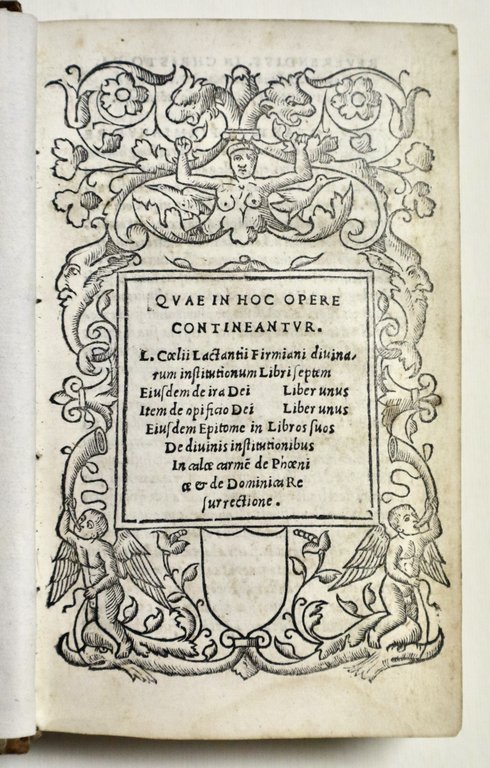 QVAE IN HOC OPERE
CONTINEANTVR.
L. Cœlii Lactantii Firmiani diuina,
rum institutionum Libri septem
Eiusdem de ira Dei Liber unus
Item de opificio Dei Liber unus
Eiusdem Epitome in Libros suos
De diuinis institutionibus
In calce carmē de Phœni
ce & de Dominica Re
surrectione.